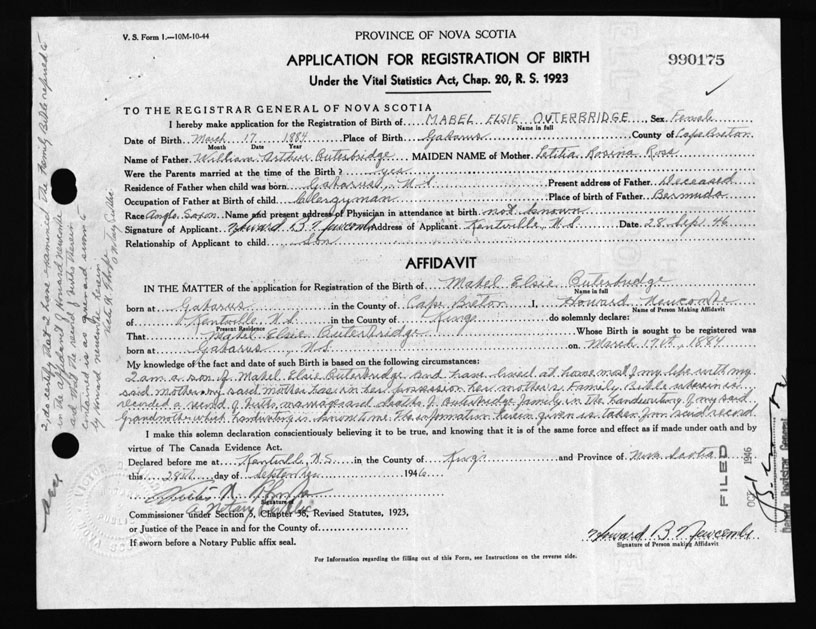 V. S. Form 1.—10M-10-44
PROVINCE OF NOVA SCOTIA
APPLICATION FOR REGISTRATION OF BIRTH
990175
Under the Vital Statistics Act, Chap. 20, R. S. 1923
TO THE REGISTRAR GENERAL OF NOVA SCOTIA
I hereby make application for the Registration of Birth of MABEL ELSIE OUTERBRIDGE Sex Female
Name in full
Date of Birth March 17 1884 Place of Birth Gabarus County of Cape Breton
Month Date Year
Name of Father William Arthur Outerbridge MAIDEN NAME of Mother Letitia Rosina Ross
Were the Parents married at the time of the Birth? yes
Residence of Father when child was born Gabarus, N.S. Present address of Father Deceased
Occupation of Father at Birth of child Clergyman Place of birth of Father Bermuda
Race Anglo Saxon Name and present address of Physician in attendance at birth not known
Signature of Applicant Howard B. Newcombe Address of Applicant Kentville, N.S. Date 28 Sept. 46
Relationship of Applicant to child Son
AFFIDAVIT
IN THE MATTER of the application for Registration of the Birth of Mabel Elsie Outerbridge
Name in full
born at Gabarus in the County of Cape Breton I, Howard Newcombe
Name of Person Making Affidavit
of Kentville, N.S. in the County of Kings do solemnly declare:
Present Residence
That Mabel Elsie Outerbridge Whose Birth is sought to be registered was
born at Gabarus, N.S. on March 17th, 1884
My knowledge of the fact and date of such Birth is based on the following circumstances:
I am a son of Mabel Elsie Outerbridge and have lived at home most of my life with my
said mother. my said mother has in her possession her mother's Family Bible wherein is
recorded a record of births, marriages and deaths of Outerbridge family in the handwriting of my said
grandmother which handwriting is known to me. The information herein given is taken from said record
I make this solemn declaration conscientiously believing it to be true, and knowing that it is of the same force and effect as if made under oath and by
virtue of The Canada Evidence Act.
Declared before me at Kentville, N.S. in the County of Kings and Province of Nova Scotia
this 28th day of September 1946
Signature of
a Notary Public
Commissioner under Section 5, Chapter 38, Revised Statutes, 1923,
or Justice of the Peace in and for the County of
If sworn before a Notary Public affix seal.
Howard B. Newcombe
Signature of Person making Affidavit
For Information regarding the filling out of this Form, see Instructions on the reverse side.
I, do certify that I have examined the Family Bible referred to
in the affidavit of Howard Newcombe
and that the record of births therein
contained is as quoted
by Howard Newcombe
a Notary Public
FILED
OCT 1946
Deputy Registrar General